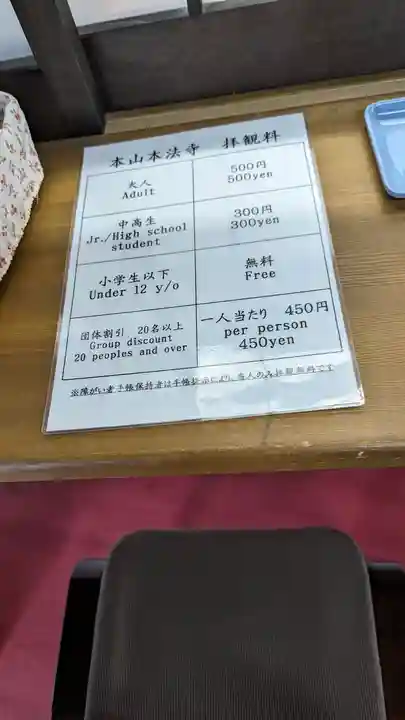 本山本法寺 拝観料
大人
Adult
500円
500yen
中高生
Jr./High school
student
300円
300yen
小学生以下
Under 12 y/o
無料
Free
団体割引 20名以上
Group discount
20 peoples and over
一人当たり 450円
per person
450yen
※障がい者手帳保持者は手帳拡示により、当人のみ拝観無料です